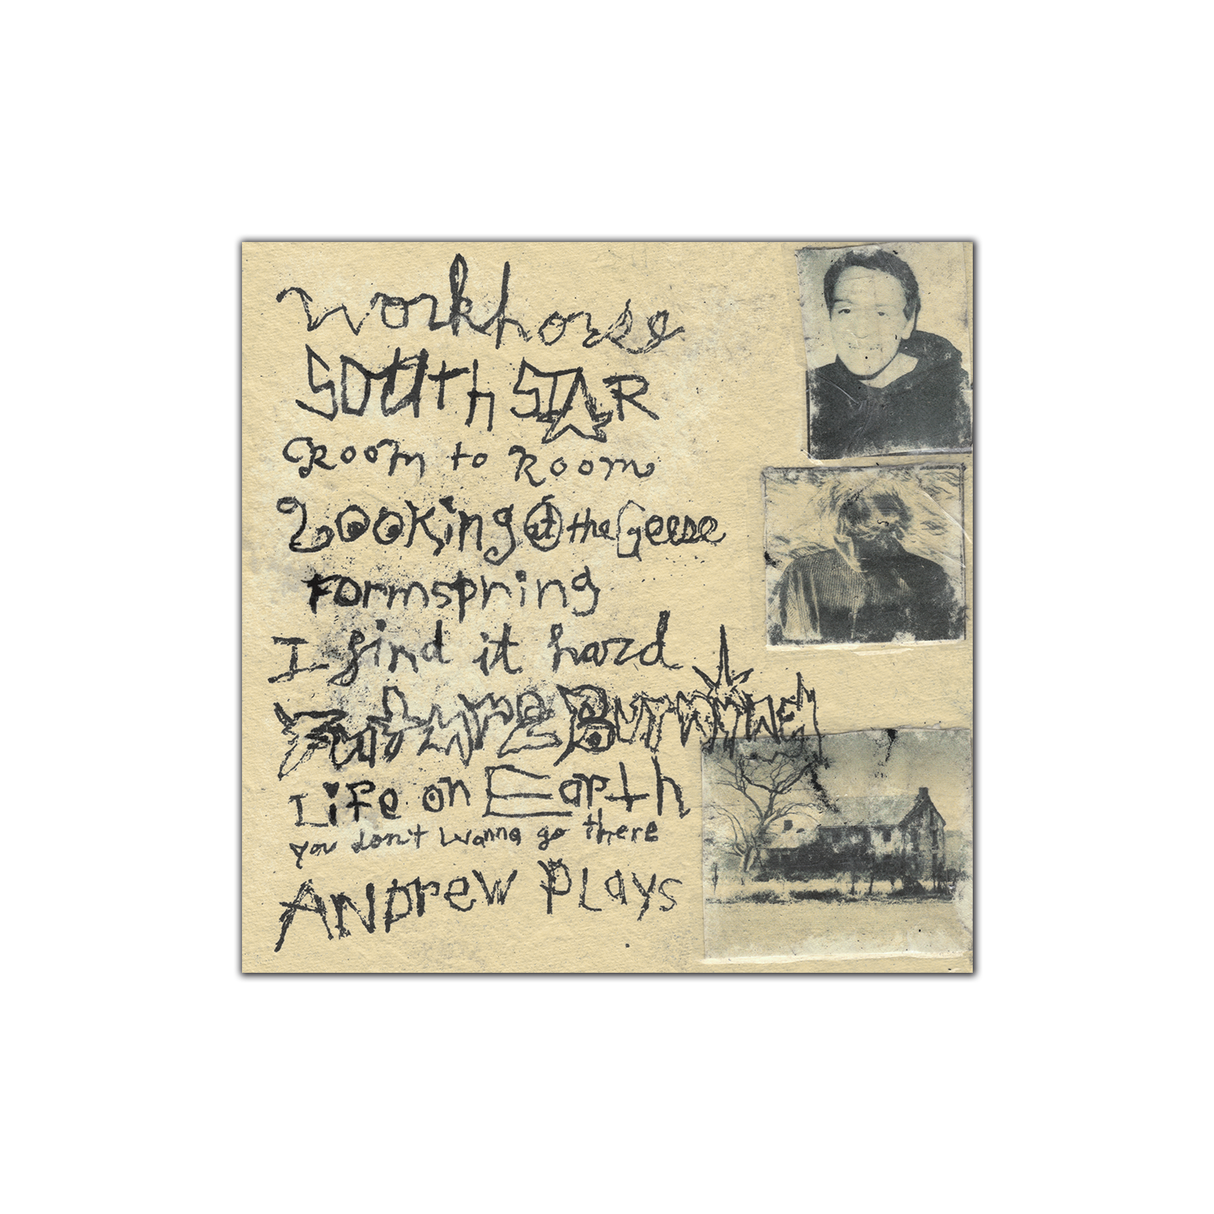 workhorse
SOUTH STAR
Room to Room
Looking at the Geese
Formspring
I find it hard
Future Burnwel
Life on Earth
you don't wanna go there
ANDREW PLAYS